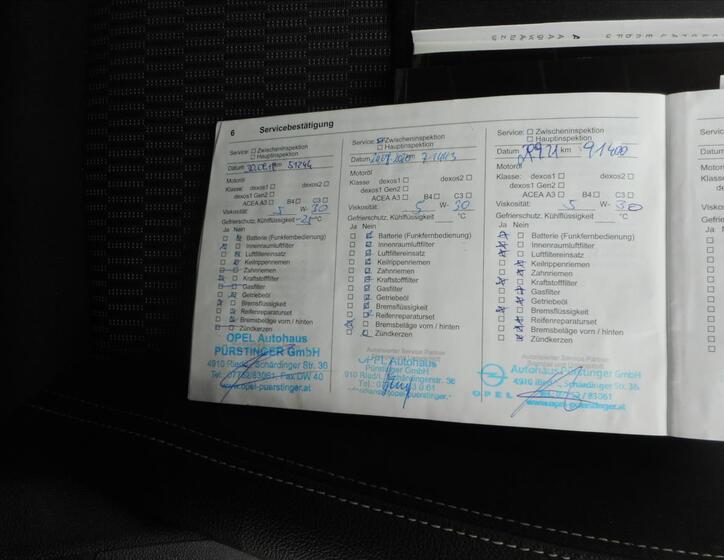 6 Servicebestätigung
Service: Zwischeninspektion
Hauptinspektion
Datum km 51244
Motoröl
Klasse: dexos1 dexos2
dexos1 Gen2
ACEA A3 B4 C3
Viskosität: 5 W- 30
Gefrierschutz, Kühlflüssigkeit -25 °C
Ja Nein
Batterie (Funkfernbedienung)
Innenraumluftfilter
Luftfiltereinsatz
Keilrippenriemen
Zahnriemen
Kraftstofffilter
Gasfilter
Getriebeöl
Bremsflüssigkeit
Reifenreparaturset
Bremsbeläge vorn / hinten
Zündkerzen
OPEL Autohaus
PÜRSTINGER GmbH
4910 Ried/I., Schärdinger Str. 36
Tel.: 07752/83061, Fax DW 40
www.opel-puerstinger.at
Service: Zwischeninspektion
Hauptinspektion
Datum km
Motoröl
Klasse: dexos1 dexos2
dexos1 Gen2
ACEA A3 B4 C3
Viskosität: 5 W- 30
Gefrierschutz, Kühlflüssigkeit °C
Ja Nein
Batterie (Funkfernbedienung)
Innenraumluftfilter
Luftfiltereinsatz
Keilrippenriemen
Zahnriemen
Kraftstofffilter
Gasfilter
Getriebeöl
Bremsflüssigkeit
Reifenreparaturset
Bremsbeläge vorn / hinten
Zündkerzen
Autorisierter Service Partner
OPEL Autohaus
Pürstinger GmbH
Service: Zwischeninspektion
Hauptinspektion
Datum km 91400
Motoröl
Klasse: dexos1 dexos2
dexos1 Gen2
ACEA A3 B4 C3
Viskosität: 5 W- 30
Gefrierschutz, Kühlflüssigkeit °C
Ja Nein
Batterie (Funkfernbedienung)
Innenraumluftfilter
Luftfiltereinsatz
Keilrippenriemen
Zahnriemen
Kraftstofffilter
Gasfilter
Getriebeöl
Bremsflüssigkeit
Reifenreparaturset
Bremsbeläge vorn / hinten
Zündkerzen
Autorisierter Service Partner
Autohaus Pürstinger GmbH
4910 Schärdinger Str. 36
OPEL Tel. 07752 / 83061
www.opel-puerstinger.at